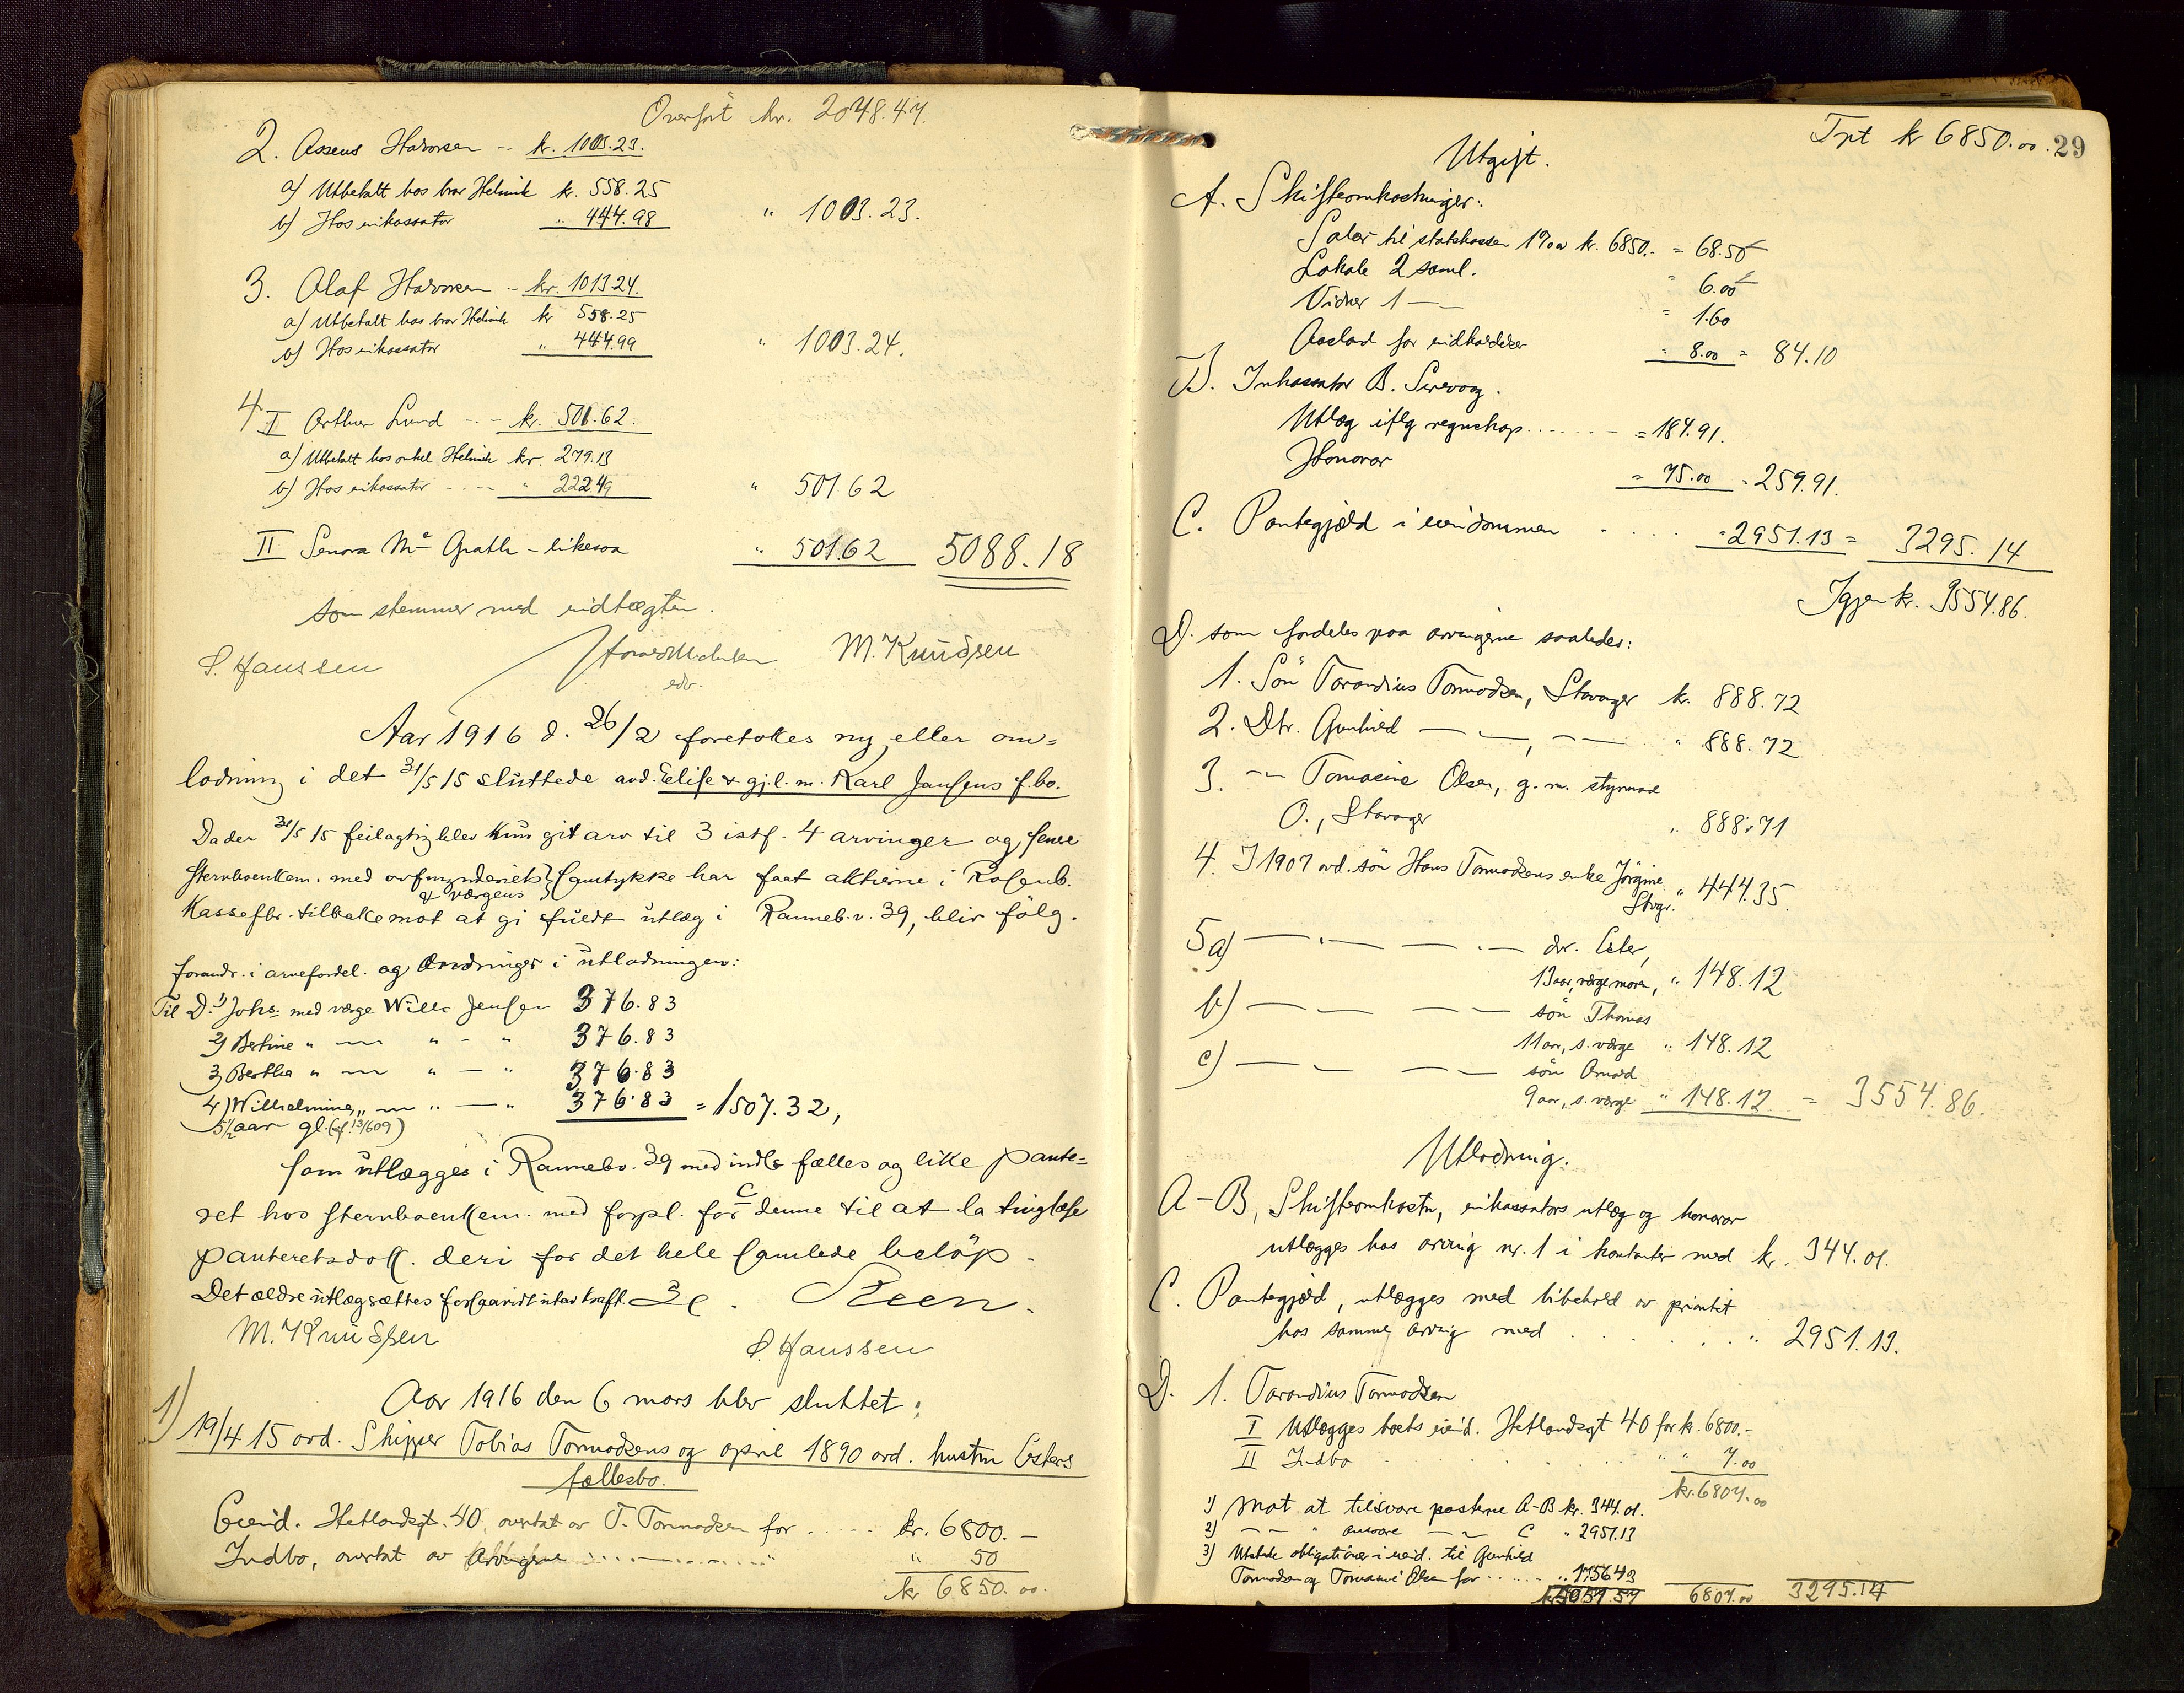 Overført kr. 2048.47.
2. Assens Halvorsen -- kr. 1003.23.
a) Utbetalt hos bror Helmik kr. 558.25
b) Hos inkassator " 444.98 " 1003.23.
3. Olaf Halvorsen -- kr. 1013.24.
a) Utbetalt hos bror Helmik kr 558.25
b) Hos inkassator " 444.99 " 1003.24.
4 I Arthur Lund -- kr. 501.62.
a) Utbetalt hos onkel Helmik kr. 279.13
b) Hos inkassator ---- " 222.49 " 501.62
II Senora Mc Grath - likesaa " 501.62 5088.18
som stemmer med indtægten.
S. Haussen M. Knudsen
edv.
Aar 1916 d. 26/2 foretokes ny eller om=
lodning i det 31/5 15 sluttede avd. Elise & gj.l. m. Karl Jansens f.bo.
Da der 31/5 15 feilagtig blev kun git arv til 3 istf. 4 arvinger og senere
stervboenkem. med overformynderiets & værgens samtykke har faat aktierne i Rosenb.
Kassefbr. tilbake mot at gi fuldt utlæg i Ranneb.v. 39, blir følg.
forandr. i arvefordel. og Ændringer i utlodningen:
Til D. 1) Johs. med værge Wille Jensen 376.83
2) Bertine " — " - " 376.83
3) Bertha " — " — " 376.83
4) Wilhelmine " — " — " 376.83 = 1507.32,
5½ aar gl. (f. 13/6 09)
som utlægges i Rannebv. 39 med indtil fælles og like pante=
ret hos stervboenkem. med forpl. for denne til at la tinglæse
panteretsdok. deri for det hele samlede beløp.
Det ældre utlæg sættes forsaavidt ut av kraft. Steen.
M. Knudsen
S. Haussen
Aar 1916 den 6 mars blev sluttet:
1) 19/4 15 avd. Skipper Tobias Tormodsens og april 1890 avd. hustru Esters
fællesbo.
Eiend. Hetlandsgt. 40, overtat av T. Tormodsen for ..... kr. 6800.-
Indbo, overtat av Arvingerne ........ " 50
kr 6850.00.
Trt kr 6850.00. 29
Utgift.
A. Skifteomkostninger:
Salær til statskassen 1% av kr. 6850.- = 68.50
Lokale 2 saml. " 6.00
Vidner 1 — " 1.60
Avslad for indholdelser " 8.00 = 84.10
B. Inkassator B. Sirevaag.
Utlæg iflg regnskap ...... = 184.91.
Honorar = 75.00 = 259.91.
C. Pantegjæld i eiendommen .... = 2951.13 = 3295.14
Igjen kr. 3554.86.
D. som fordeles paa arvingerne saaledes:
1. Søn Tarandius Tormodsen, Stavanger kr. 888.72
2. Dtr. Gunhild — —, — — " 888.72
3. — Tomasine Olsen, g. m. styrmand
O., Stavanger " 888.71
4. I 1907 avd. søn Hans Tormodsens enke Jørgine
Stvgr. " 444.35.
5 a) — . — — . — dtr. Ester,
13 aar, værge moren, " 148.12
b) — — — — søn Thomas
11 aar, s. værge " 148.12
c) — — — — søn Arnold
9 aar, s. værge " 148.12 = 3554.86.
Utlodning.
A-B, Skifteomkostn, inkassators utlæg og honorar
utlægges hos arving nr. 1 i kontanter med kr. 344.01.
C. Pantegjæld, utlægges med bibehold av prioritet
hos samme arving med ..... " 2951.13.
D. 1. Tarandius Tormodsen
I Utlægges boets eiend. Hetlandsgt 40 for kr. 6800.-
II Indbo " " 7.00
kr. 6807.00
1) mot at tilsvare posterne A-B kr. 344.01.
2) — — " ansvare — — C " 2951.13
3) Utstede obligationer i eiend. til Gunhild
Tormodsen og Tomasine Olsen for ...... " 1756.43
5051.57 6807.00 3295.14